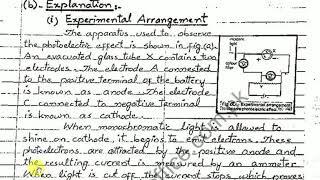 (b). Explanation:-
(i) Experimental Arrangement
The apparatus used to observe
the photoelectric effect is shown in fig.(a).
An evacuated glass tube X contains two
electrodes. The electrode A connected
to the positive terminal of the battery
is known as anode. The electrode
C connected to negative terminal
is known as cathode.
When monochromatic light is allowed to
shine on cathode, it begins to emit electrons. These
photoelectrons are attracted by the positive anode and
the resulting current is measured by an ammeter.
When light is cut off the current stops which proves